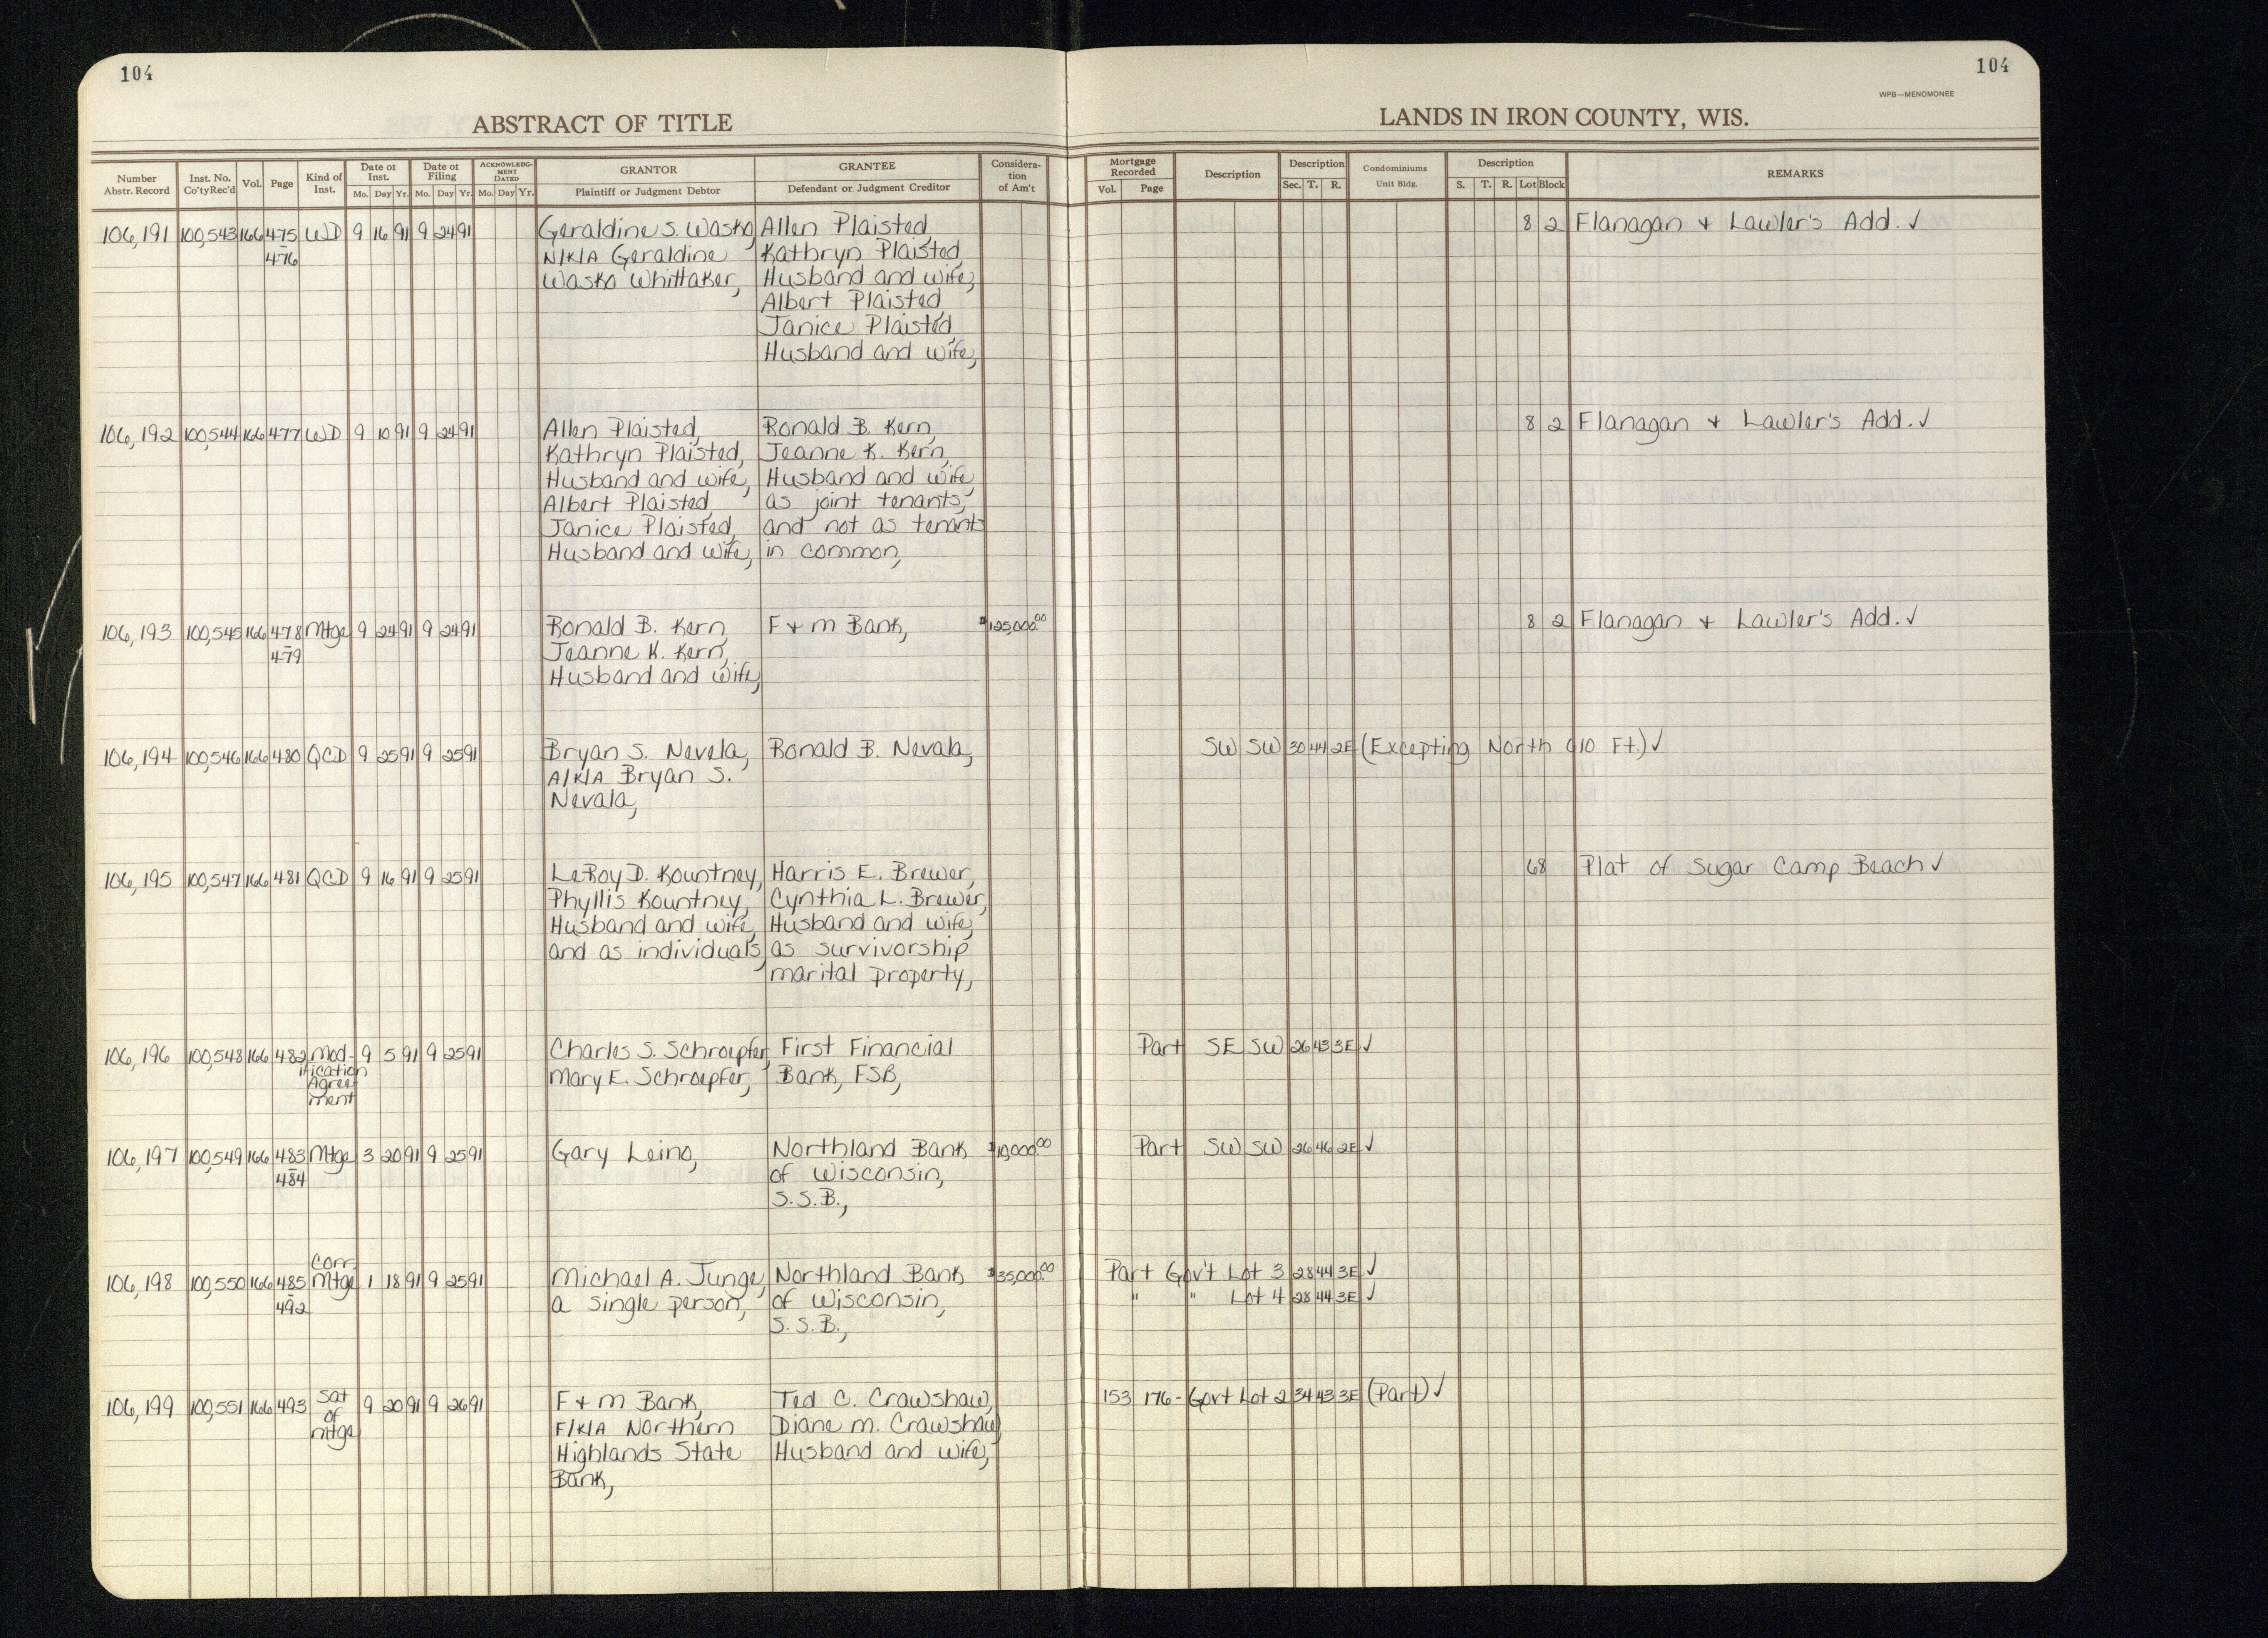 104
104
WPB—MENOMONEE
ABSTRACT OF TITLE
LANDS IN IRON COUNTY, WIS.
Number Abstr. Record | Inst. No. Co'tyRec'd | Vol. | Page | Kind of Inst. | Date of Inst. Mo. Day Yr. | Date of Filing Mo. Day Yr. | ACKNOWLEDGMENT DATED Mo. Day Yr. | GRANTOR Plaintiff or Judgment Debtor | GRANTEE Defendant or Judgment Creditor | Consideration of Am't | Mortgage Recorded Vol. Page | Description | Description Sec. T. R. | Condominiums Unit Bldg. | Description S. T. R. Lot Block | REMARKS
106,191 100,543 166 475 WD 9 16 91 9 24 91 Geraldine S. Wasko Allen Plaisted, 8 2 Flanagan + Lawler's Add. ✓
- 476 N/K/A Geraldine Kathryn Plaisted,
Wasko Whittaker, Husband and wife,
Albert Plaisted,
Janice Plaisted,
Husband and wife,
106,192 100,544 166 477 WD 9 10 91 9 24 91 Allen Plaisted, Ronald B. Kern, 8 2 Flanagan + Lawler's Add. ✓
Kathryn Plaisted, Jeanne K. Kern,
Husband and wife, Husband and wife
Albert Plaisted, as joint tenants,
Janice Plaisted, and not as tenants
Husband and wife, in common,
106,193 100,545 166 478 Mtge 9 24 91 9 24 91 Ronald B. Kern, F + M Bank, $125,000.00 8 2 Flanagan + Lawler's Add. ✓
- 479 Jeanne K. Kern,
Husband and wife,
106,194 100,546 166 480 QCD 9 25 91 9 25 91 Bryan S. Nevela, Ronald B. Nevala, SW SW 30 44 2E (Excepting North 610 Ft.) ✓
A/K/A Bryan S.
Nevala,
106,195 100,547 166 481 QCD 9 16 91 9 25 91 LeRoy D. Kountney, Harris E. Brewer, 68 Plat of Sugar Camp Beach ✓
Phyllis Kountney, Cynthia L. Brewer,
Husband and wife, Husband and wife,
and as individuals, as survivorship
marital property,
106,196 100,548 166 482 Mod- 9 5 91 9 25 91 Charles S. Schroepfer, First Financial Part SE SW 26 43 3E ✓
ification
Agree Mary E. Schroepfer, Bank, FSB,
ment
106,197 100,549 166 483 Mtge 3 20 91 9 25 91 Gary Leino, Northland Bank $10,000.00 Part SW SW 26 46 2E ✓
- 484 of Wisconsin,
S.S.B.,
Corr
106,198 100,550 166 485 Mtge 1 18 91 9 25 91 Michael A. Junge, Northland Bank $35,000.00 Part Gov't Lot 3 28 44 3E ✓
- 492 a single person, of Wisconsin, " " Lot 4 28 44 3E ✓
S.S.B.,
106,199 100,551 166 493 Sat 9 20 91 9 26 91 F + M Bank, Ted C. Crawshaw, 153 176- Gov't Lot 2 34 43 3E (Part) ✓
of F/K/A Northern Diane M. Crawshaw
mtge Highlands State Husband and wife,
Bank,